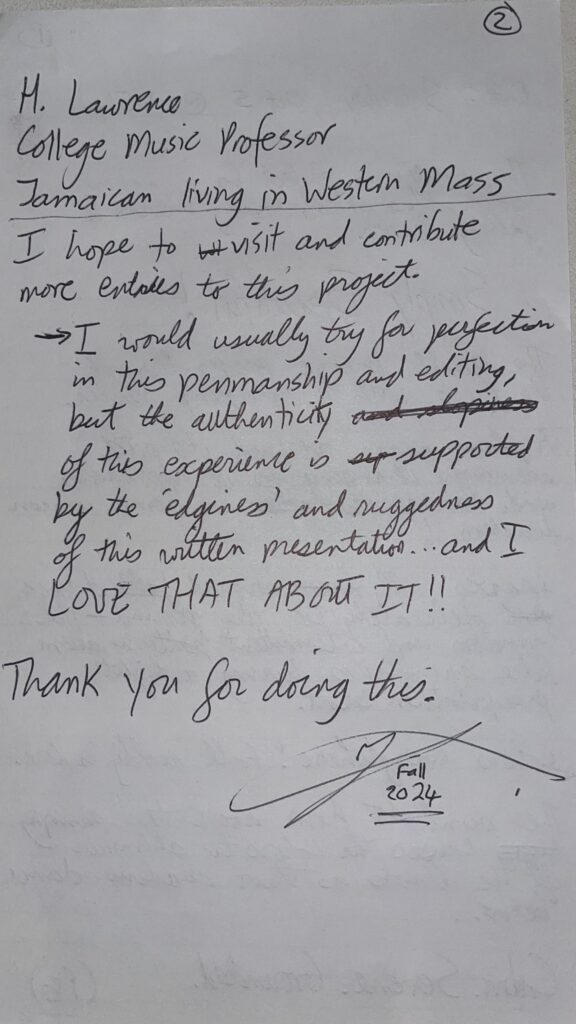 2
H. Lawrence
College Music Professor
Jamaican living in Western Mass
I hope to visit and contribute
more entries to this project.
→ I would usually try for perfection
in this penmanship and editing,
but the authenticity and slopiness
of this experience is sup supported
by the 'edginess' and ruggedness
of this written presentation... and I
LOVE THAT ABOUT IT!!
Thank you for doing this.
Fall
2024